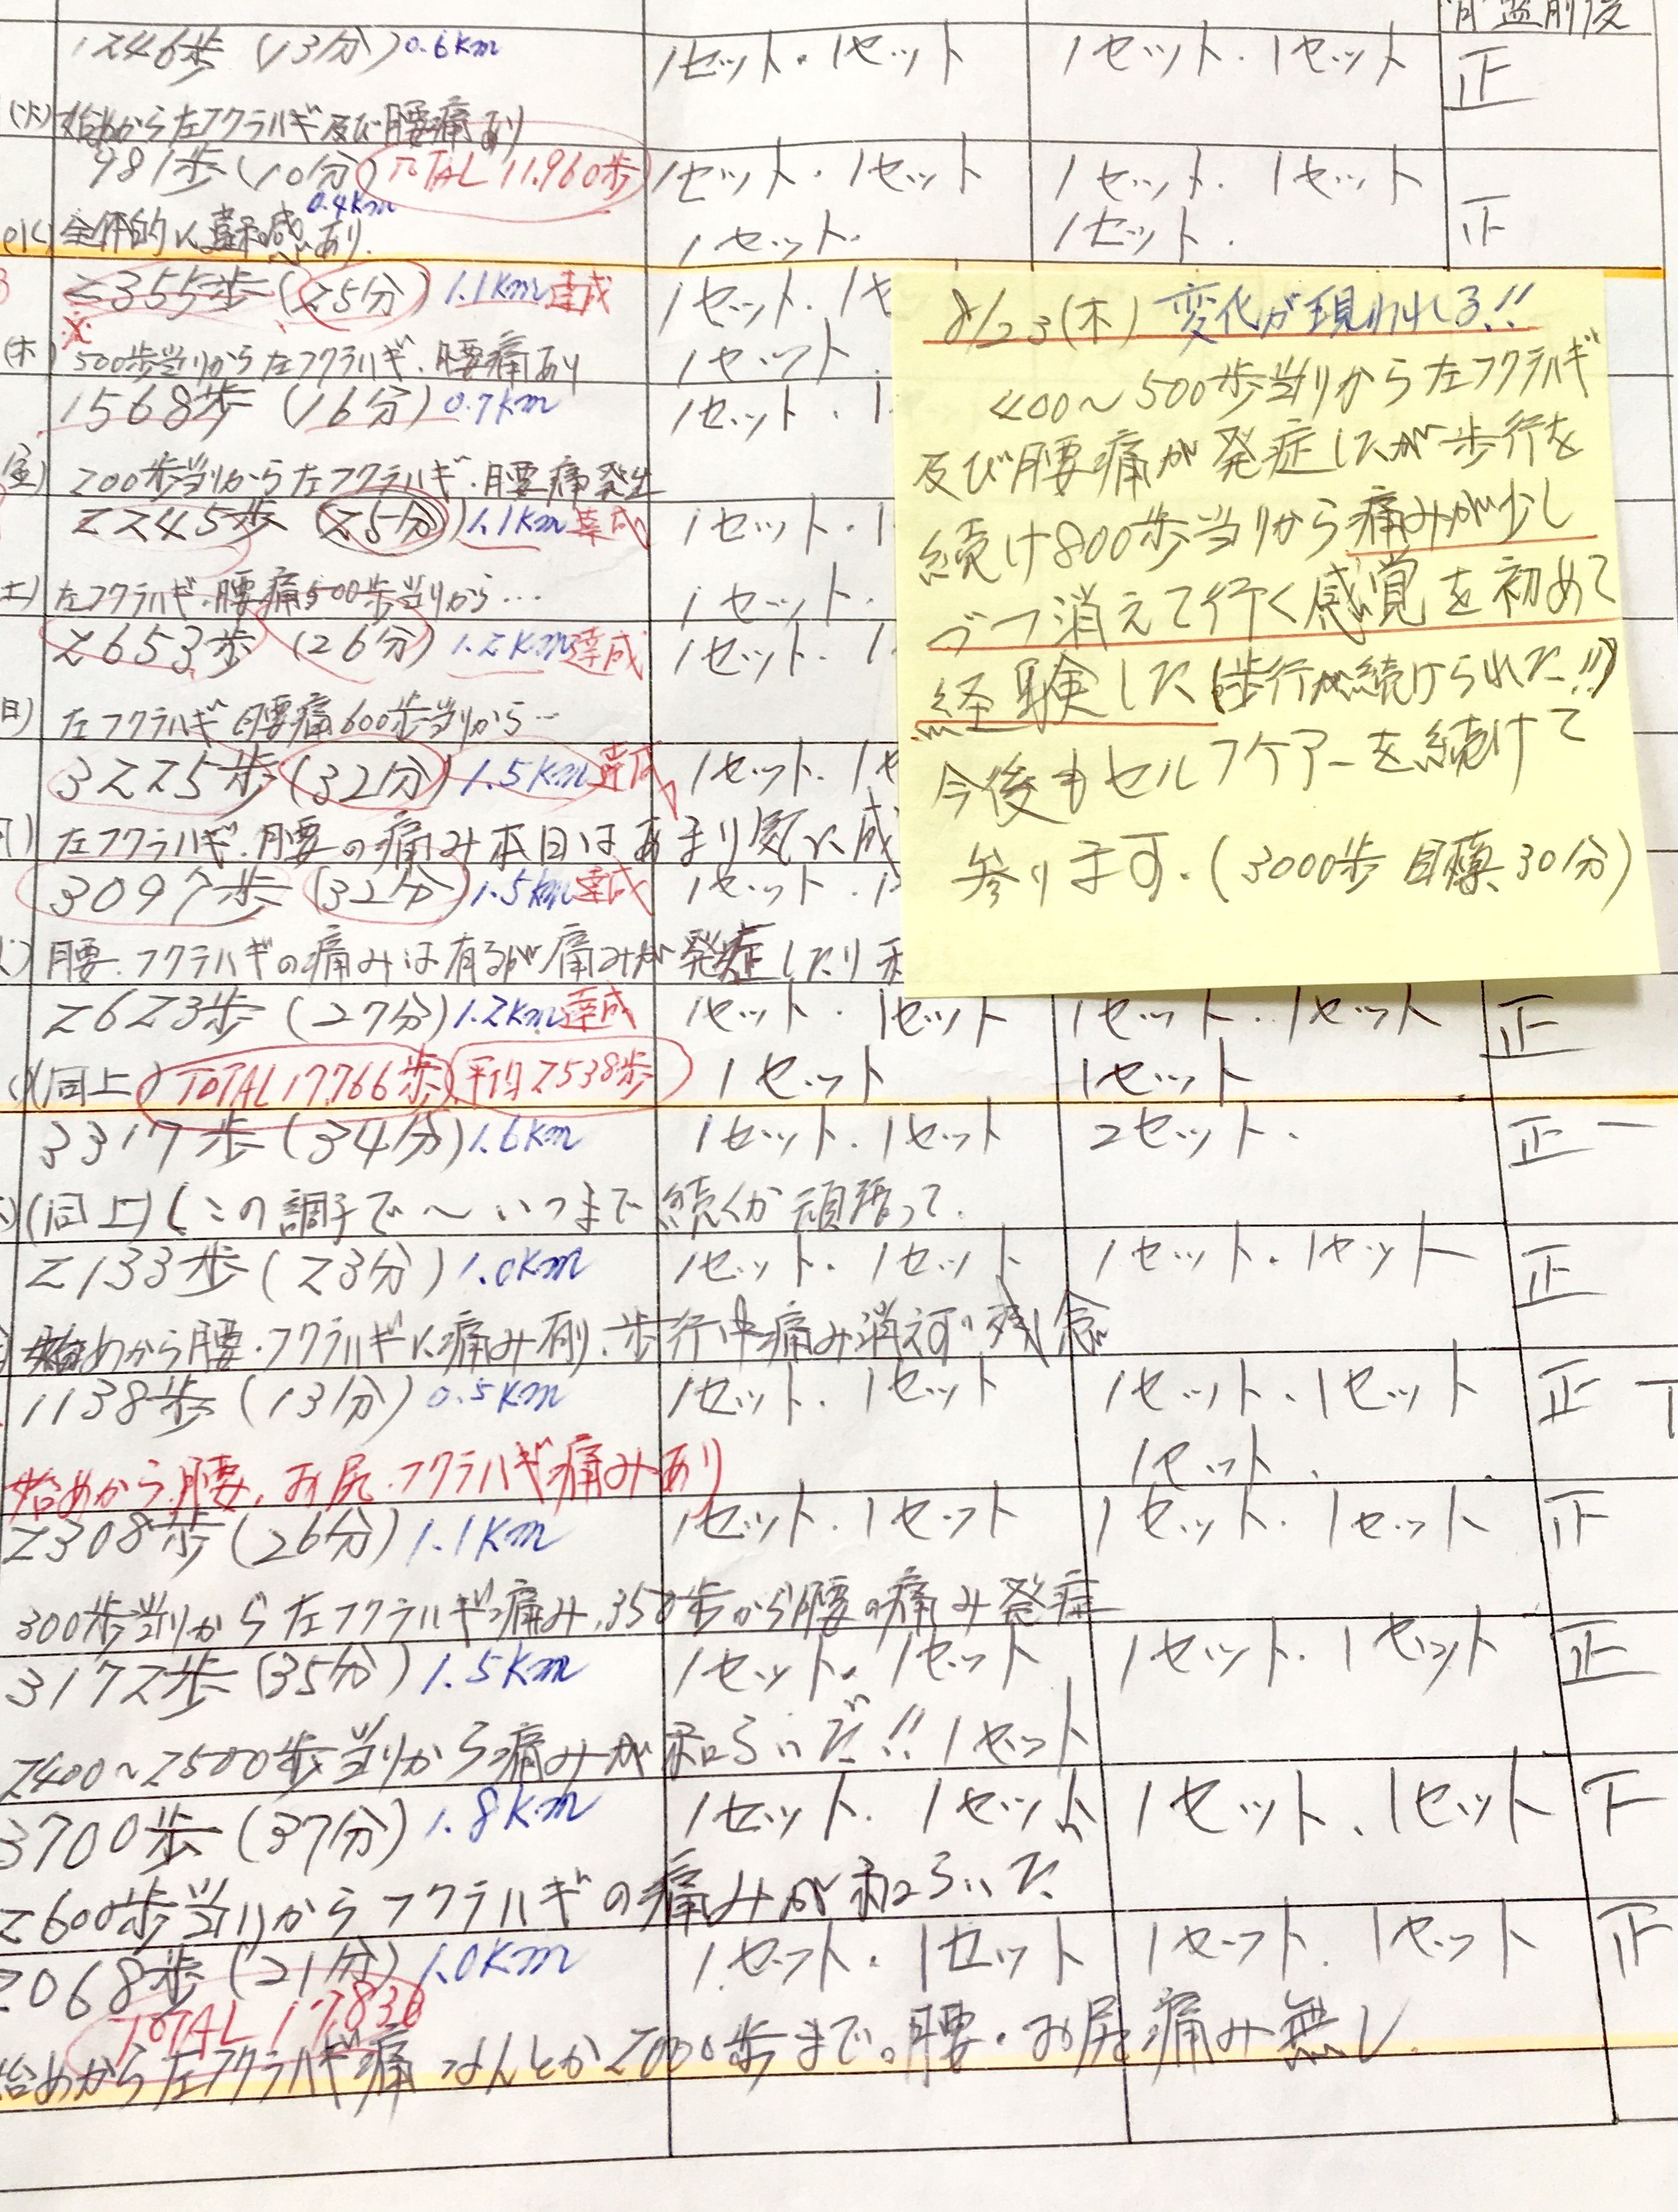 骨盤前後
1246歩 (13分) 0.6km
1セット・1セット
1セット・1セット
正
(火) 始めから左フクラハギ及び腰痛あり
981歩 (10分) TOTAL 11.960歩
0.4km
1セット・1セット
1セット・1セット
(水) 全体的に違和感あり.
1セット.
1セット.
正
2355歩 (25分) 1.1km 達成
1セット.
※
(木) 500歩当りから左フクラハギ.腰痛あり
1セット
1568歩 (16分) 0.7km
1セット.
(金) 200歩当りから左フクラハギ.腰痛発生
2245歩 (25分) 1.1km 達成
1セット・
(土) 左フクラハギ.腰痛500歩当りから…
1セット.
2653歩 (26分) 1.2km 達成
1セット.
(日) 左フクラハギ 腰痛600歩当りから…
3225歩 (32分) 1.5km 達成
1セット.
左フクラハギ.腰の痛み本日はあまり気に成
3097歩 (32分) 1.5km 達成
1セット.
腰.フクラハギの痛みは有るが痛みが発症したり
2623歩 (27分) 1.2km 達成
1セット.1セット
1セット.1セット
正
(同上) TOTAL 17.766歩 平均2538歩
1セット
1セット
8/23(木) 変化が現われる!!
400〜500歩当りから左フクラハギ
及び腰痛が発症したが歩行を
続け800歩当りから痛みが少し
づつ消えて行く感覚を初めて
経験した(歩行が続けられた!!)
今後もセルフケアーを続けて
参ります.(3000歩 目標30分)
3317歩 (34分) 1.6km
1セット.1セット
2セット.
正一
(同上) (この調子で〜いつまで続くか頑張って.
2133歩 (23分) 1.0km
1セット.1セット
1セット.1セット
正
始めから腰・フクラハギに痛み有り.歩行中痛み消えず残念
1138歩 (13分) 0.5km
1セット.1セット
1セット.1セット
正 T
1セット.
始めから.腰.お尻.フクラハギ痛みあり
2308歩 (26分) 1.1km
1セット.1セット
1セット.1セット
正
300歩当りから左フクラハギ痛み.350歩から腰の痛み発症
3172歩 (35分) 1.5km
1セット.1セット
1セット.1セット
正
2400〜2500歩当りから痛みが和らいだ!! 1セット
3700歩 (37分) 1.8km
1セット.1セット
1セット.1セット
下
2600歩当りからフクラハギの痛みが和らいだ
2068歩 (21分) 1.0km
1セット.1セット
1セット.1セット
正
TOTAL 17.836
始めから左フクラハギ痛 なんとか2000歩まで。腰・お尻痛み無し.